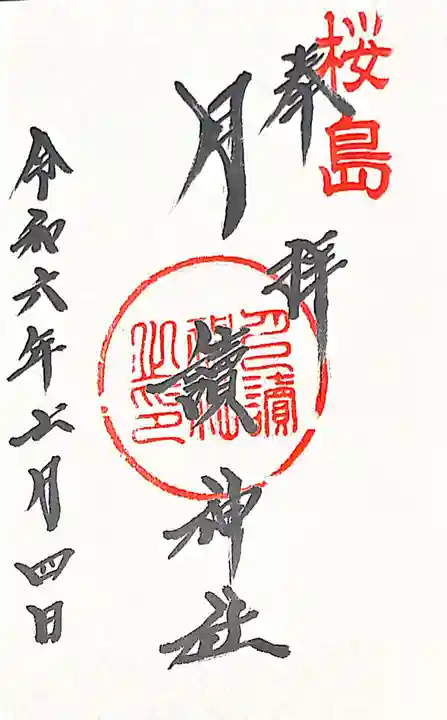 桜島
奉拝
月讀神社
月讀
神社
之印
令和六年 月四日